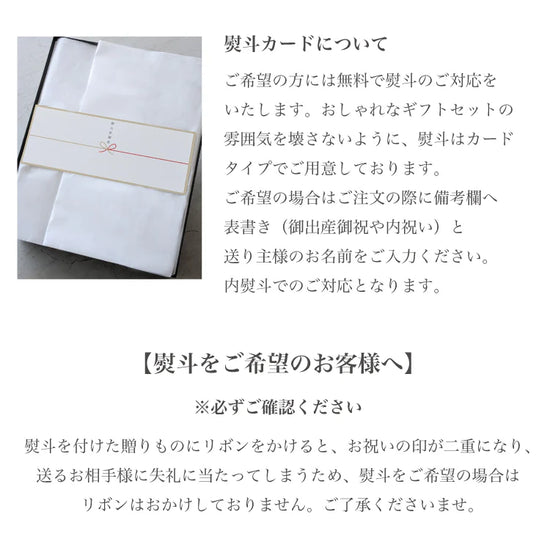 熨斗カードについて
ご希望の方には無料で熨斗のご対応を
いたします。おしゃれなギフトセットの
雰囲気を壊さないように、熨斗はカード
タイプでご用意しております。
ご希望の場合はご注文の際に備考欄へ
表書き（御出産御祝や内祝い）と
送り主様のお名前をご入力ください。
内熨斗でのご対応となります。
【熨斗をご希望のお客様へ】
※必ずご確認ください
熨斗を付けた贈りものにリボンをかけると、お祝いの印が二重になり、
送るお相手様に失礼に当たってしまうため、熨斗をご希望の場合は
リボンはおかけしておりません。ご了承くださいませ。